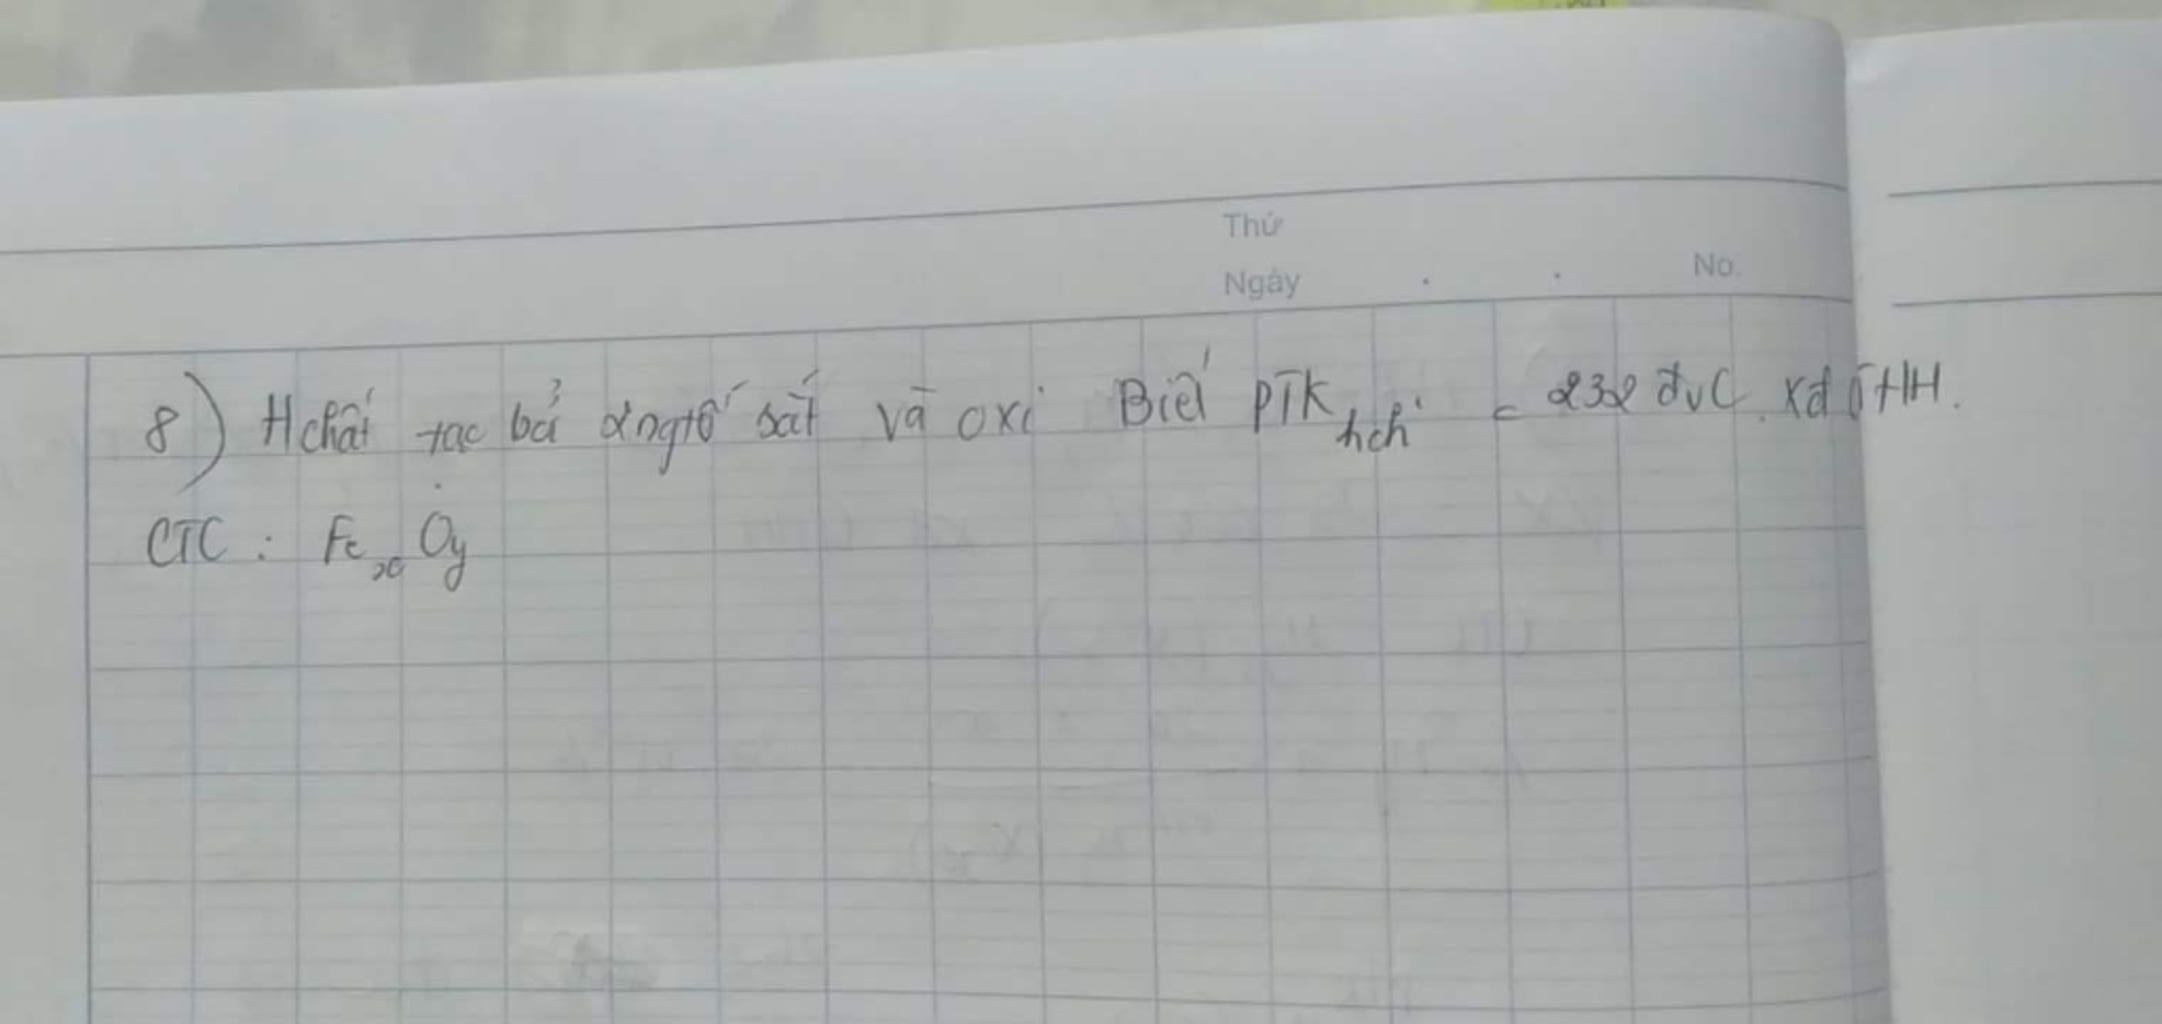 Thứ
Ngày . . No.
8) Hchất tạc bả 2ngtố sắt và oxi Biết PTK hch = 232 đvC. xđ CTHH.
CTC : FexOy